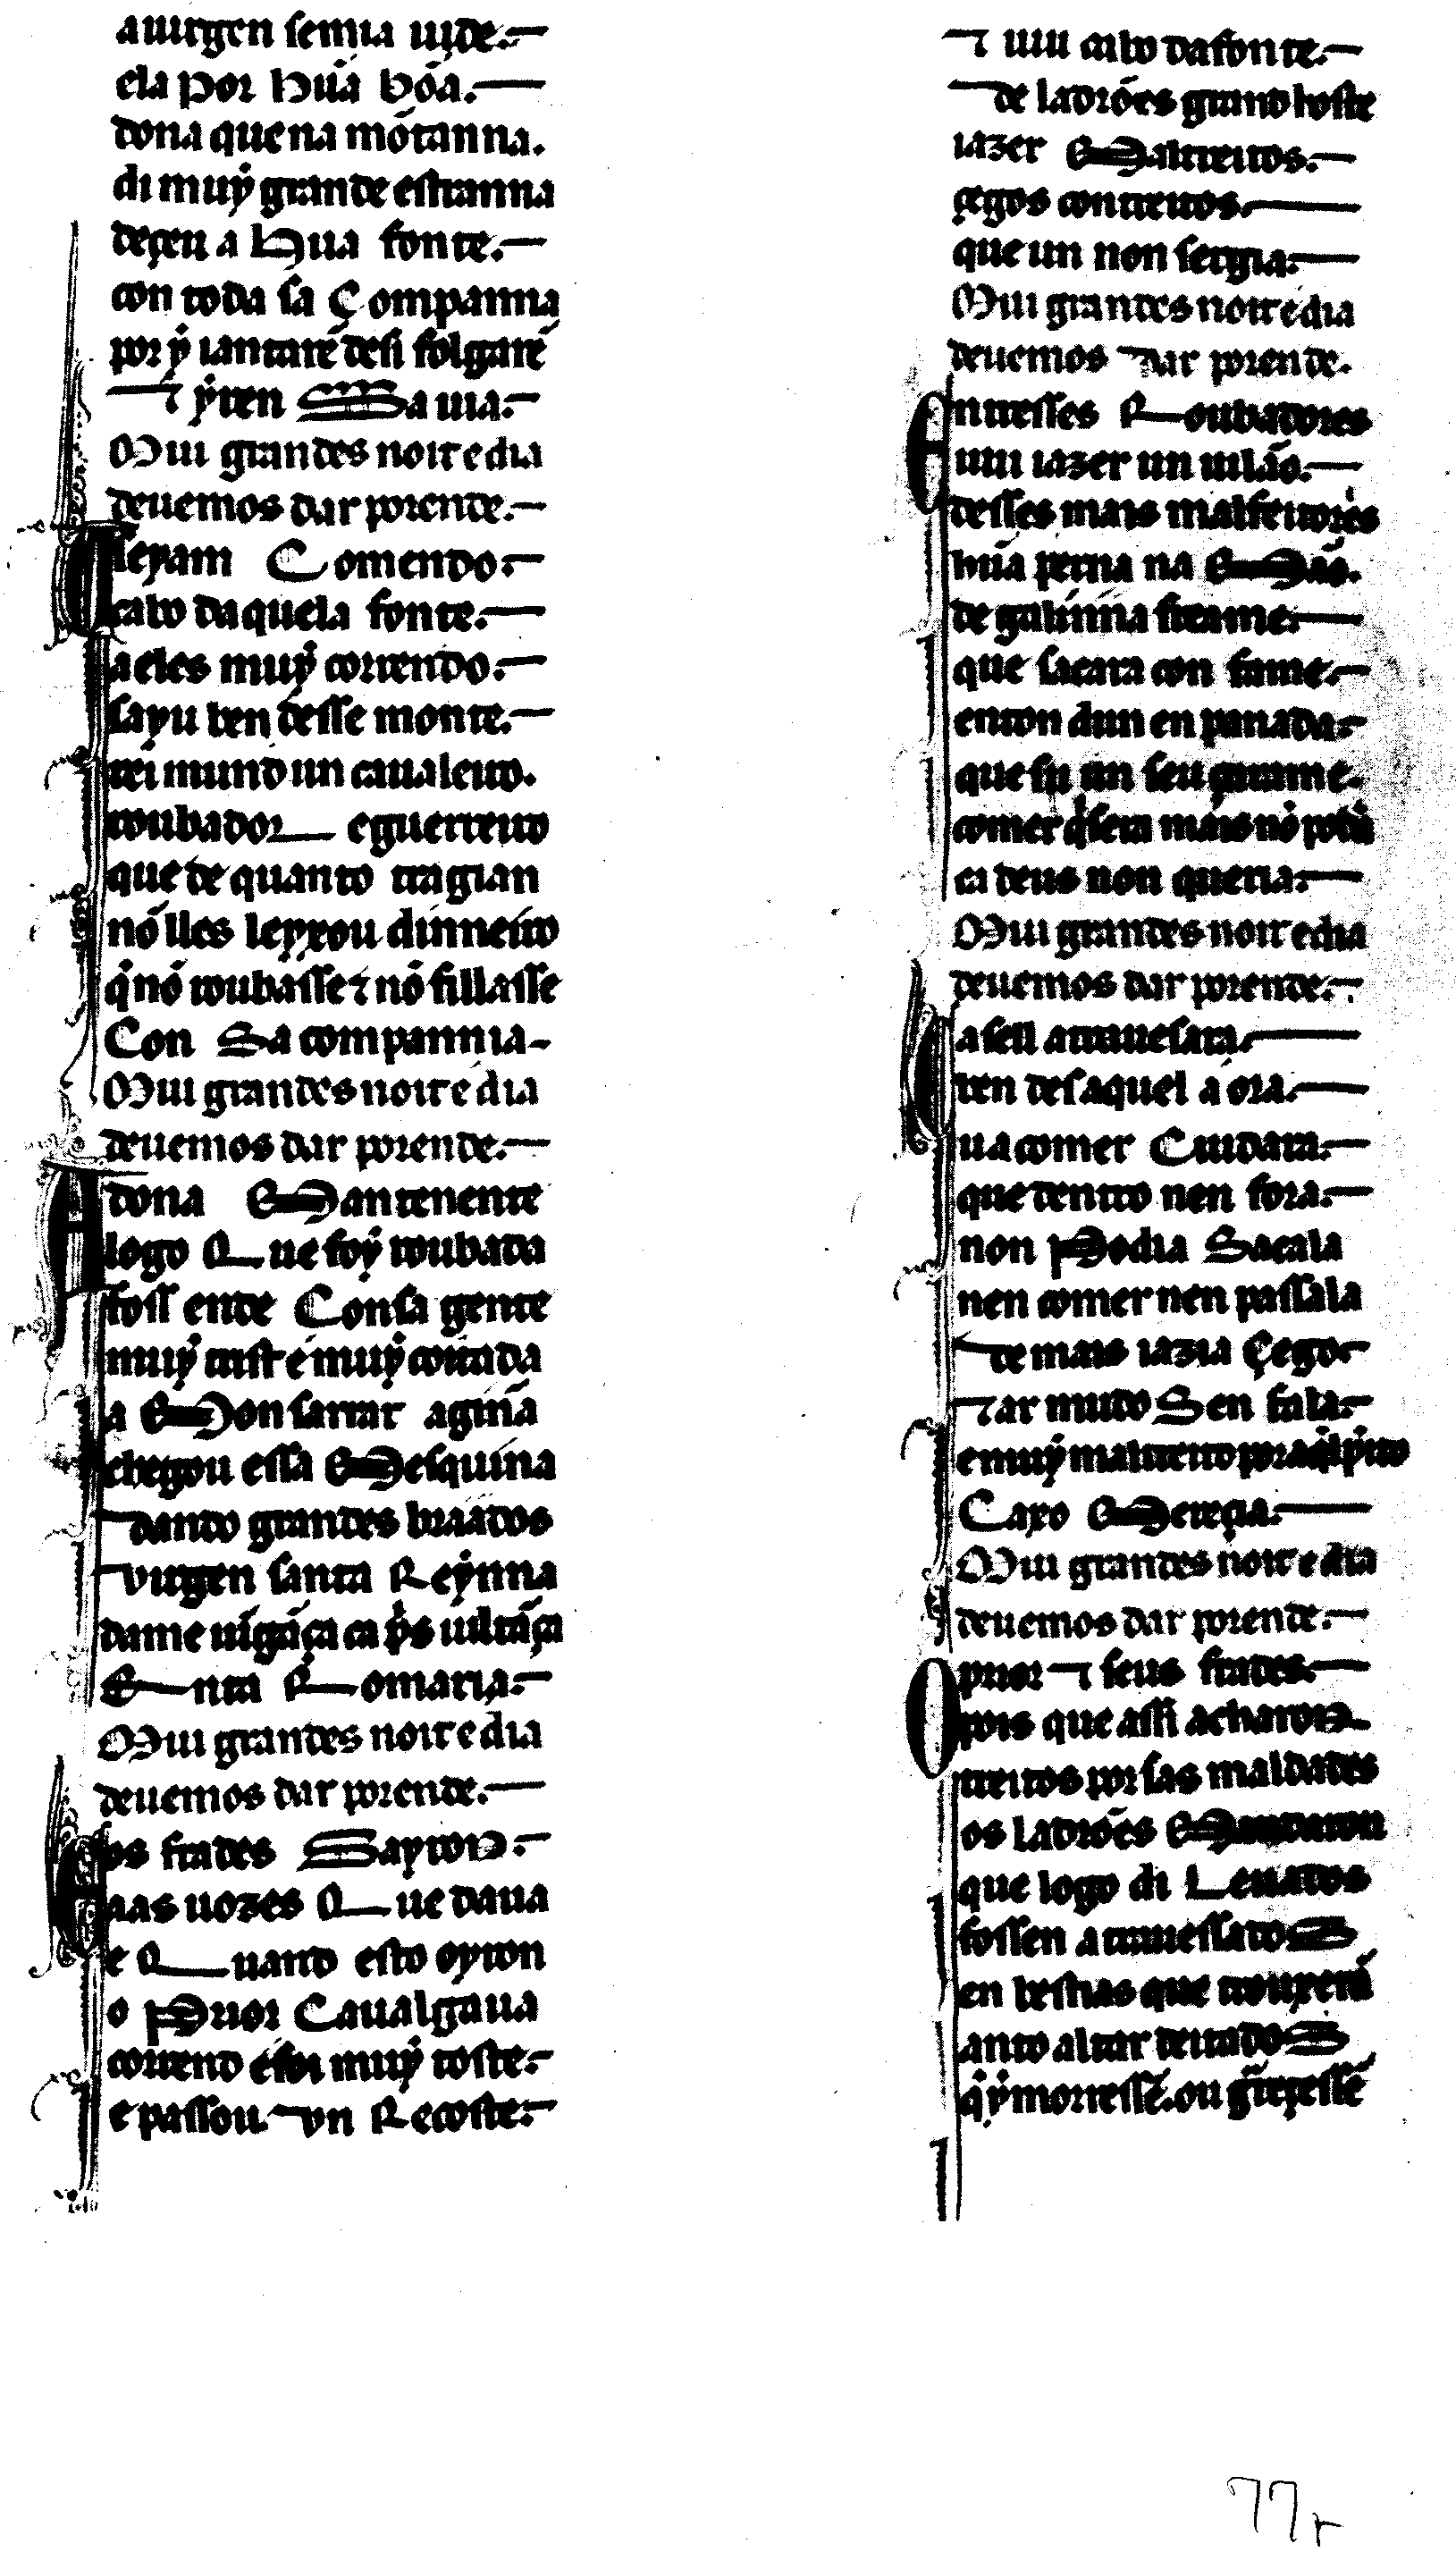 a uirgen semia uide.
ela por hũa bõa.
dona que na mõtanna.
di muy grande estranna
deçeu a hua fonte.
con toda sa Companna
por y iantarẽ desi folgarẽ
⁊ yren Sa uia.
Mui grandes noit e dia
deuemos dar porende.
U seyam Comendo.
cabo daquela fonte.
a eles muy correndo.
sayu ben desse monte.
reimund un caualeiro.
roubador e guerreiro
que de quanto tragian
nõ lles leyxou dinneiro
q̇ nõ roubasse ⁊ nõ fillasse
Con Sa compannia
Mui grandes noit e dia
deuemos dar porende.
A dona Mantenente
logo Que foy roubada
foss ende Con sa gente
muy trist e muy coitada
a Monsarrat aginna
chegou essa Mesquinna
dando grandes braados
uirgen santa Reynna
dame uĩgãça ca p̃s uiltãça
En ta Romaria.
Mui grandes noit e dia
deuemos dar porende.
E os frades Sayron.
aas uozes Que daua
e Quand esto oyron
o Prior Caualgaua
corrend e foi muy toste.
e passou un Recoste.
⁊ uiu cabo da fonte.
de ladrões grand hoste
iazer Maltreitos.
çegos contreitos.
que un non sergia.
Mui grandes noit e dia
deuemos dar porende.
Entresses Roubadores
uiu iazer un uilão.
desses mais malfeitores
hũa perna na Mão.
de galinna freame.
que sacara con fame.
enton dun enpanada.
que su un seu çurame.
comer q̇sera mais nõ podia
ca deus non queria.
Mui grandes noit e dia
deuemos dar porende.
Ca sell atrauesara.
ben des aquel a ora.
u a comer Cuidara.
que dentro nen fora.
non Podia Sacala
nen comer nen passala
de mais iazia Çego.
⁊ ar mudo Sen fala.
e muy maltreito por aq̇l p̃ito
Caro Mereçia.
Mui grandes noit e dia
deuemos dar porende.
O prior ⁊ seus frades.
pois que assi acharon
treitos por sas maldades
os ladrões Mandaron
que logo di Leuados
fossen atrauessadoS
en bestias que trouxerã
ant o altar deitadoS
q̇ y morressẽ. ou g̃reçessẽ
77r